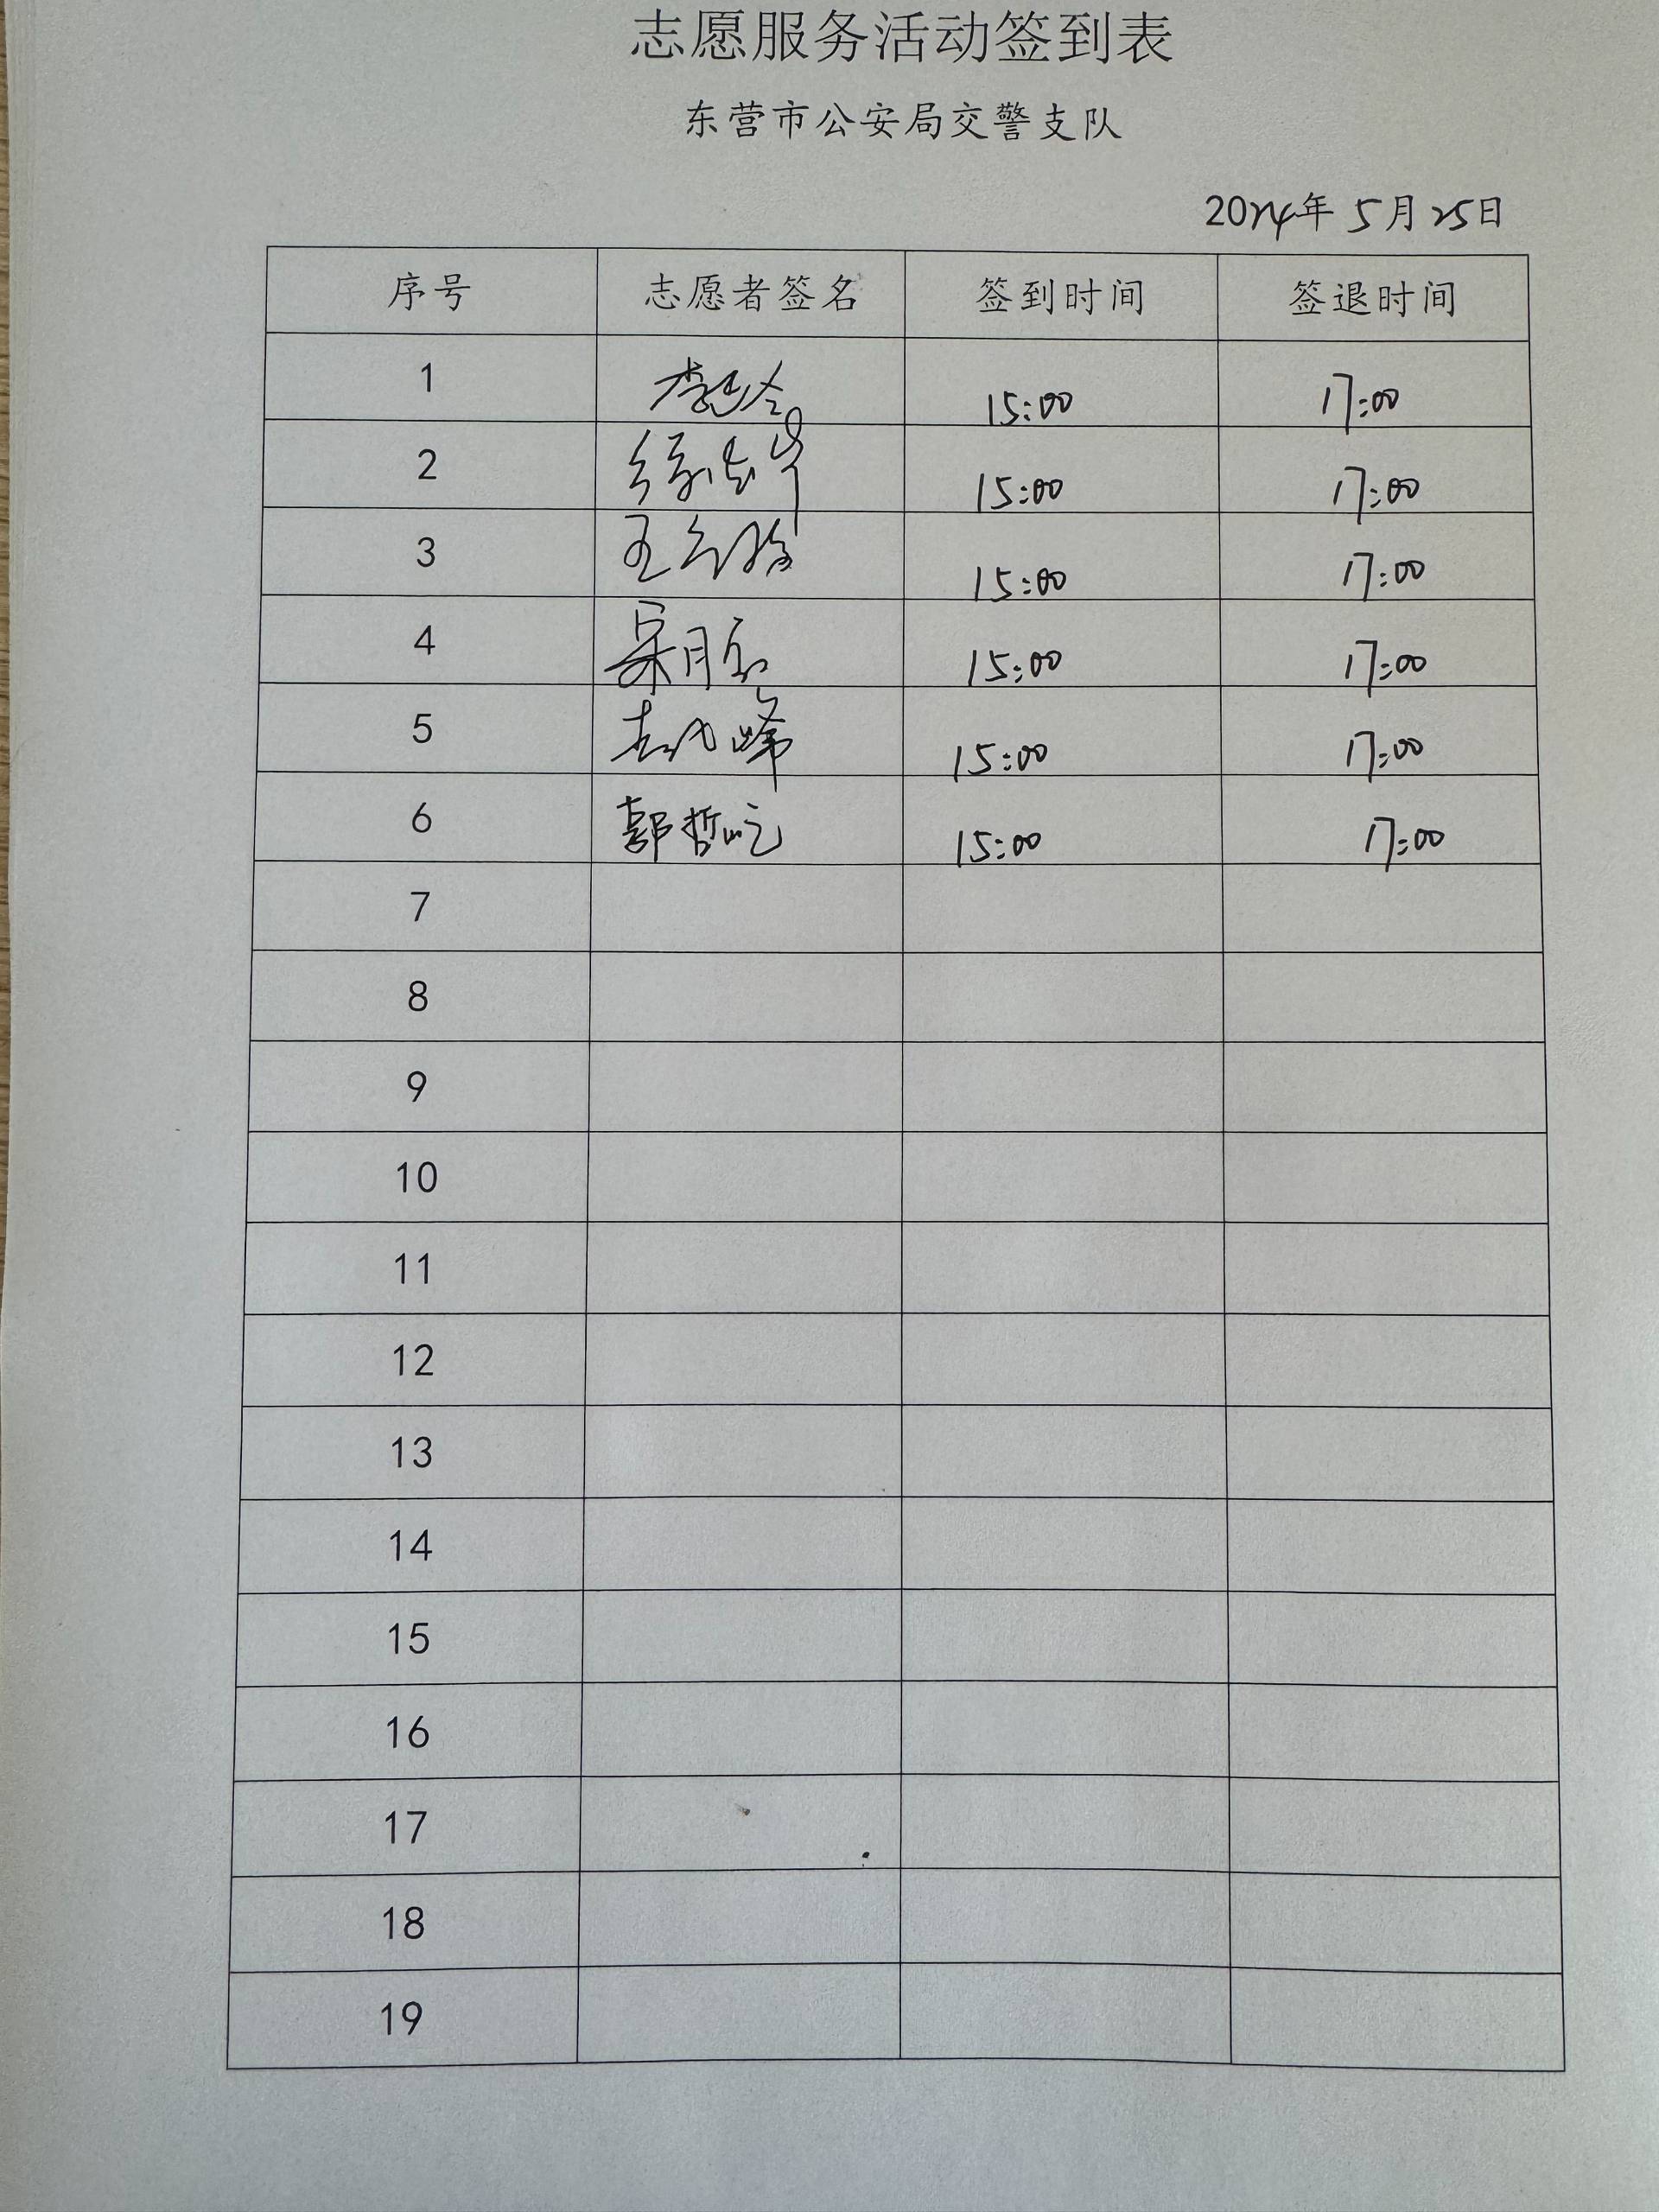 志愿服务活动签到表
东营市公安局交警支队
2024年 5月 25日
序号 志愿者签名 签到时间 签退时间
1 15:00 17:00
2 15:00 17:00
3 15:00 17:00
4 15:00 17:00
5 15:00 17:00
6 郭哲屹 15:00 17:00
7
8
9
10
11
12
13
14
15
16
17
18
19